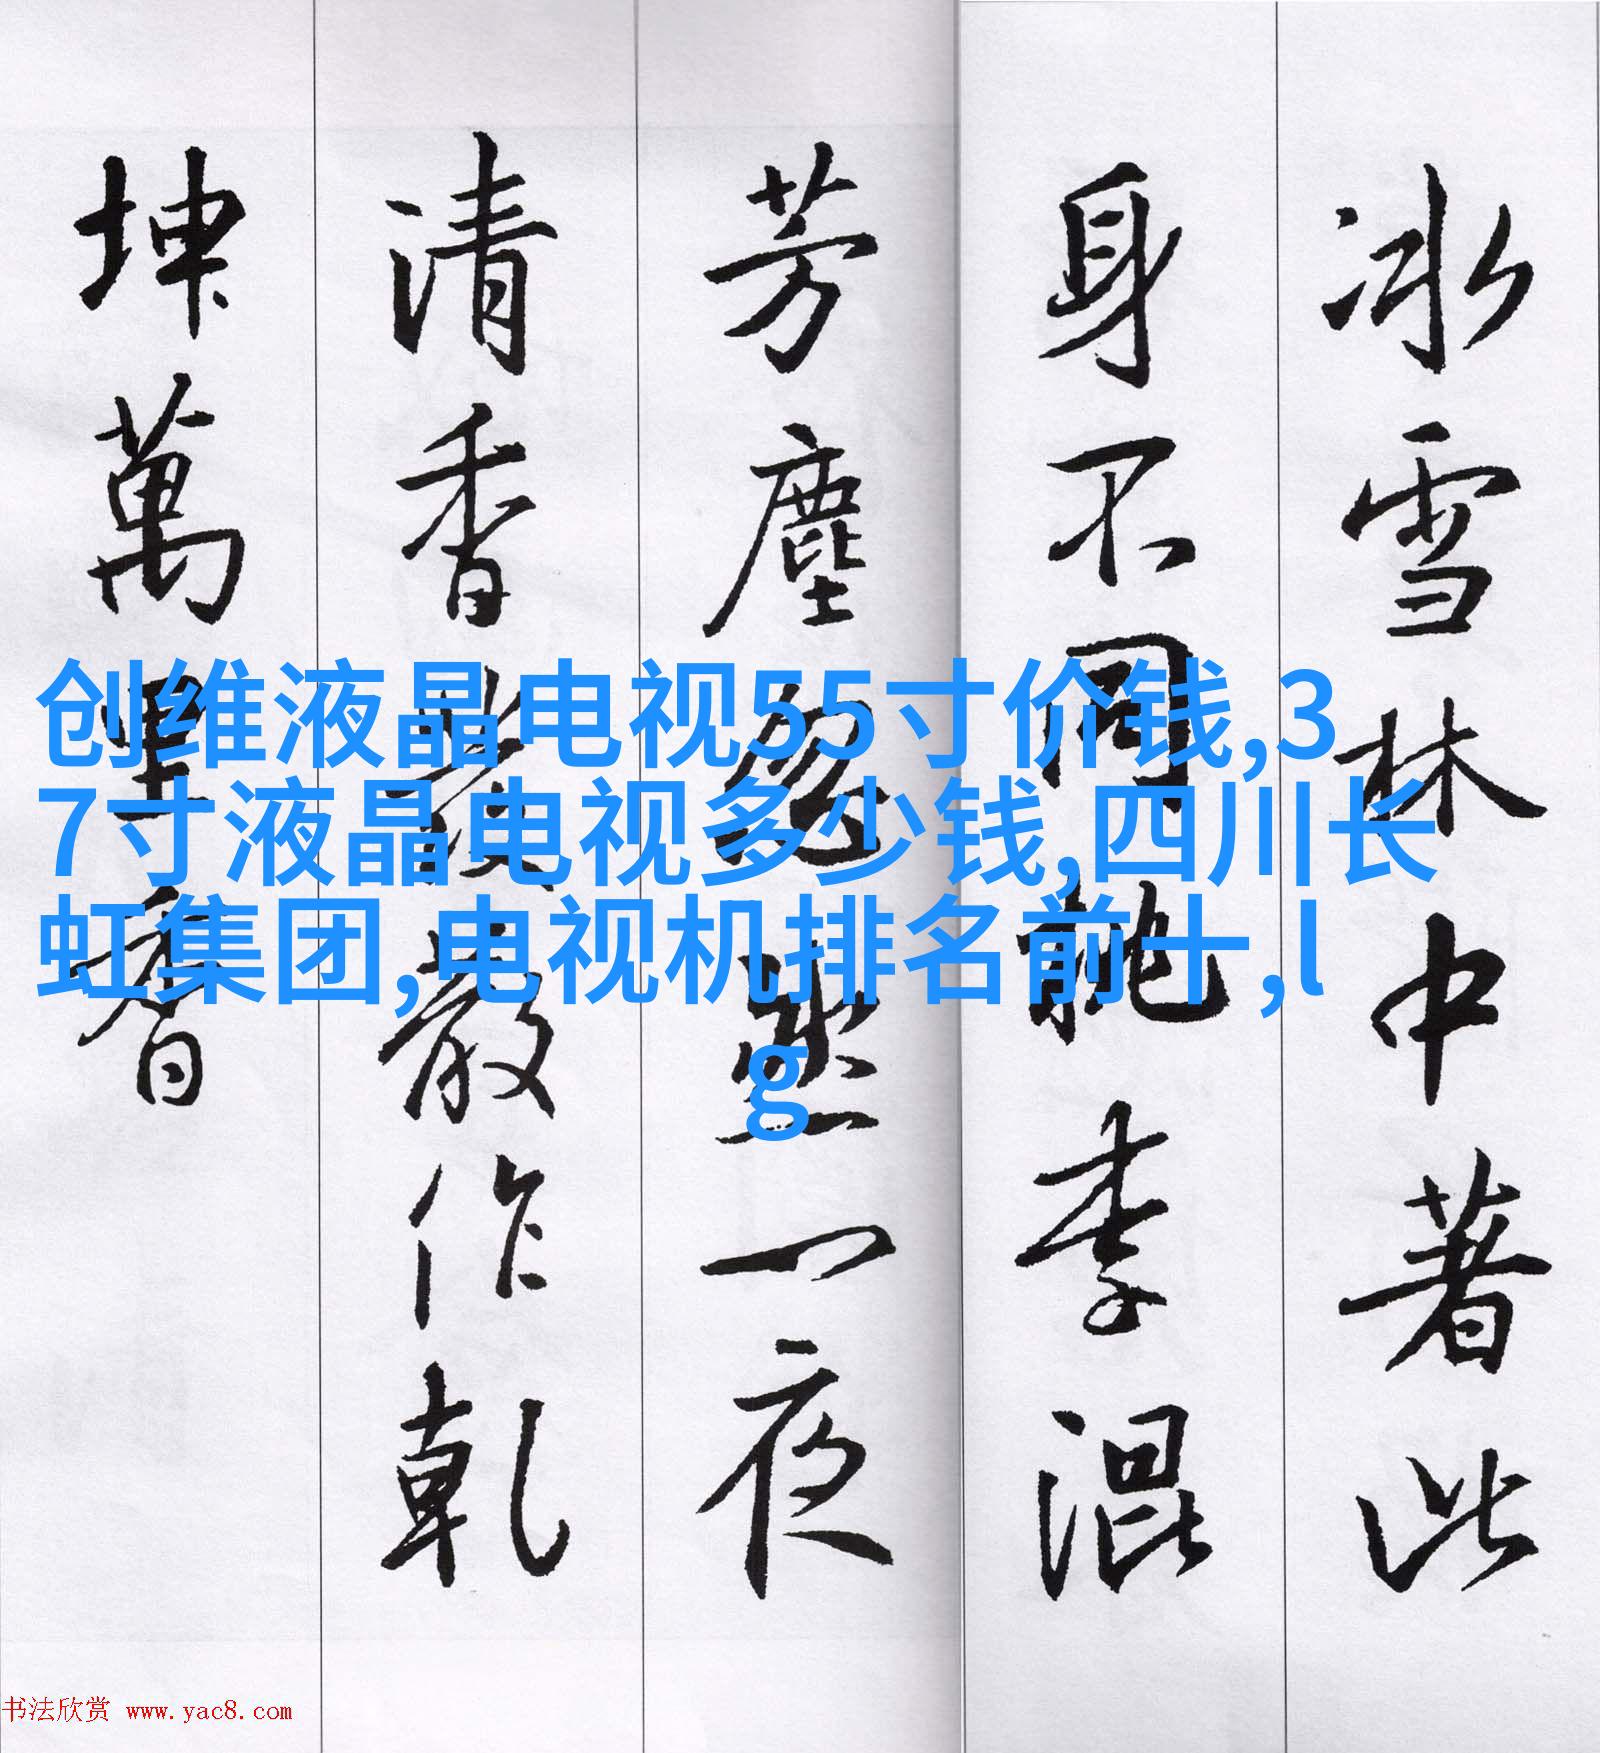 冰雪林中著此
身不同桃李混
芳塵忽然一夜
清香發散作乾
坤萬里春
创维液晶电视55寸价钱,3
7寸液晶电视多少钱,四川长
虹集团,电视机排名前十,l
g
书法欣赏 www.yac8.com